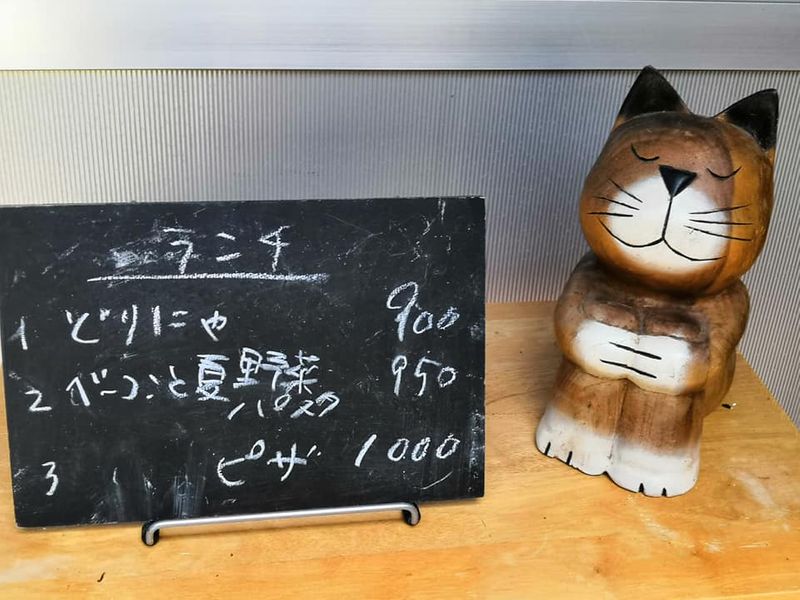 ランチ
1 どりにゃ 900
2 ベーコンと夏野菜 950
パスタ
3 ピザ 1000